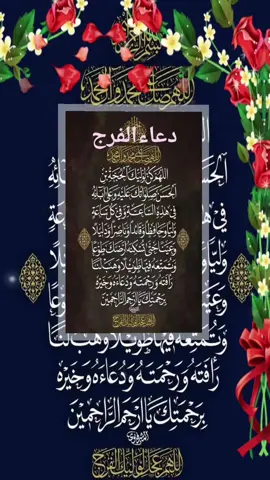 دعاء الفرج
اللهم صل على محمد وآل محمد
اللهم كن لوليك الحجة بن
الحسن صلواتك عليه وعلى آبائه
في هذه الساعة وفي كل ساعة
وليا وحافظا وقائدا وناصرا ودليلا
وعينا حتى تسكنه أرضك طوعا
وتمتعه فيها طويلا وهب لنا
رأفته ورحمته ودعاءه وخيره
برحمتك يا أرحم الراحمين
اللهم عجل لوليك الفرج
وتمتعه فيها طويلا وهب لنا
رأفته ورحمته ودعاءه وخيره
برحمتك يا أرحم الراحمين
اللهم عجل لوليك الفرج